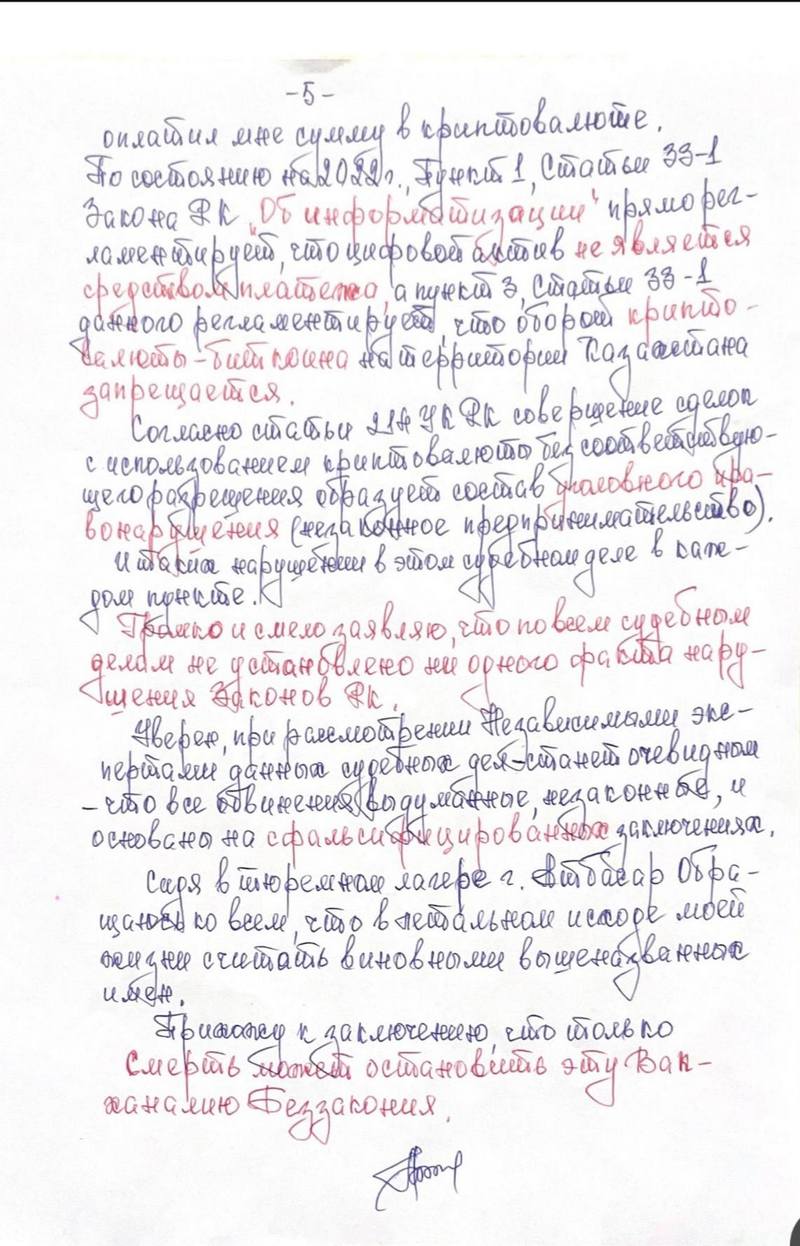 -5-
оплатил мне сумму в криптовалюте.
По состоянию на 2022г., Пункт 1, Статьи 33-1
Закона РК "Об информатизации" прямо рег-
ламентирует, что цифровой актив не является
средством платежа, а пункт 3, Статьи 33-1
данного регламентирует, что оборот крипто-
валюты-биткоина на территории Казахстана
запрещается.
Согласно статьи 214 УК РК совершение сделок
с использованием криптовалюты без соответствую-
щего разрешения образует состав уголовного пра-
вонарушения (незаконное предпринимательство).
И таких нарушений в этом судебном деле в каж-
дом пункте.
Громко и смело заявляю, что по всем судебным
делам не установлено ни одного факта нару-
шения Законов РК.
Уверен, при рассмотрении Независимыми экс-
пертами данных судебных дел-станет очевидным
-что все обвинения выдуманные, незаконные, и
основаны на сфальсифицированных заключениях.
Сидя в тюремном лагере г. Атбасар Обра-
щаюсь ко всем, что в летальном исходе моей
жизни считать виновными вышеназванных
имен.
Прихожу к заключению, что только
Смерть может остановить эту Вак-
ханалию Беззакония.